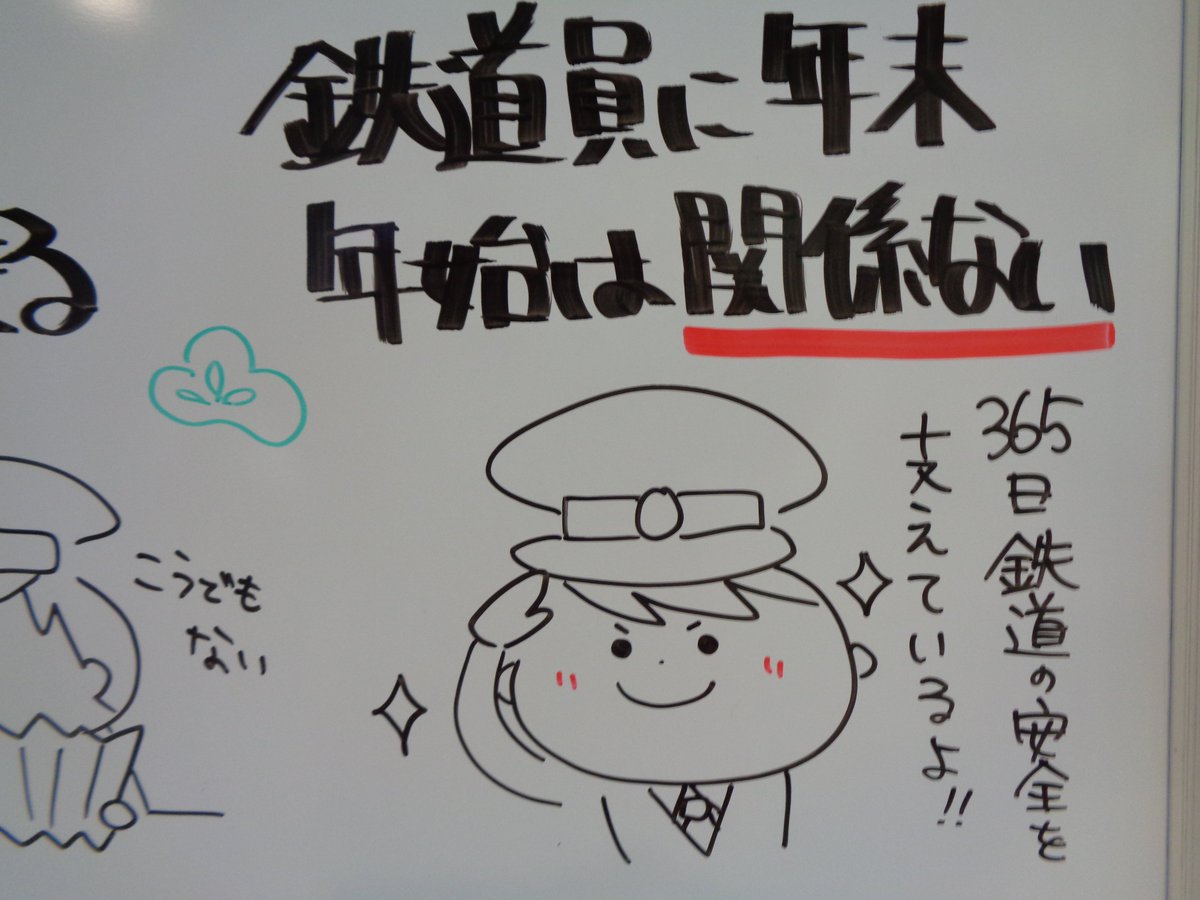 鉄道員に年末
年始は関係ない
365日鉄道の安全を
支えているよ!!
る
こうでも
ない